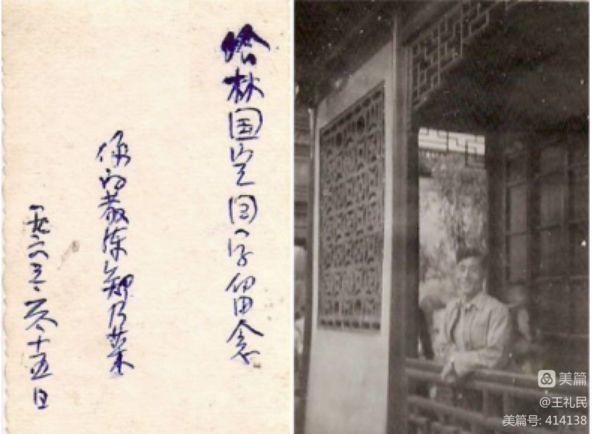 给林国定同学留念
你的教练郑乃
一九六三.六.十五日
美篇
@王礼民
美篇号: 414138